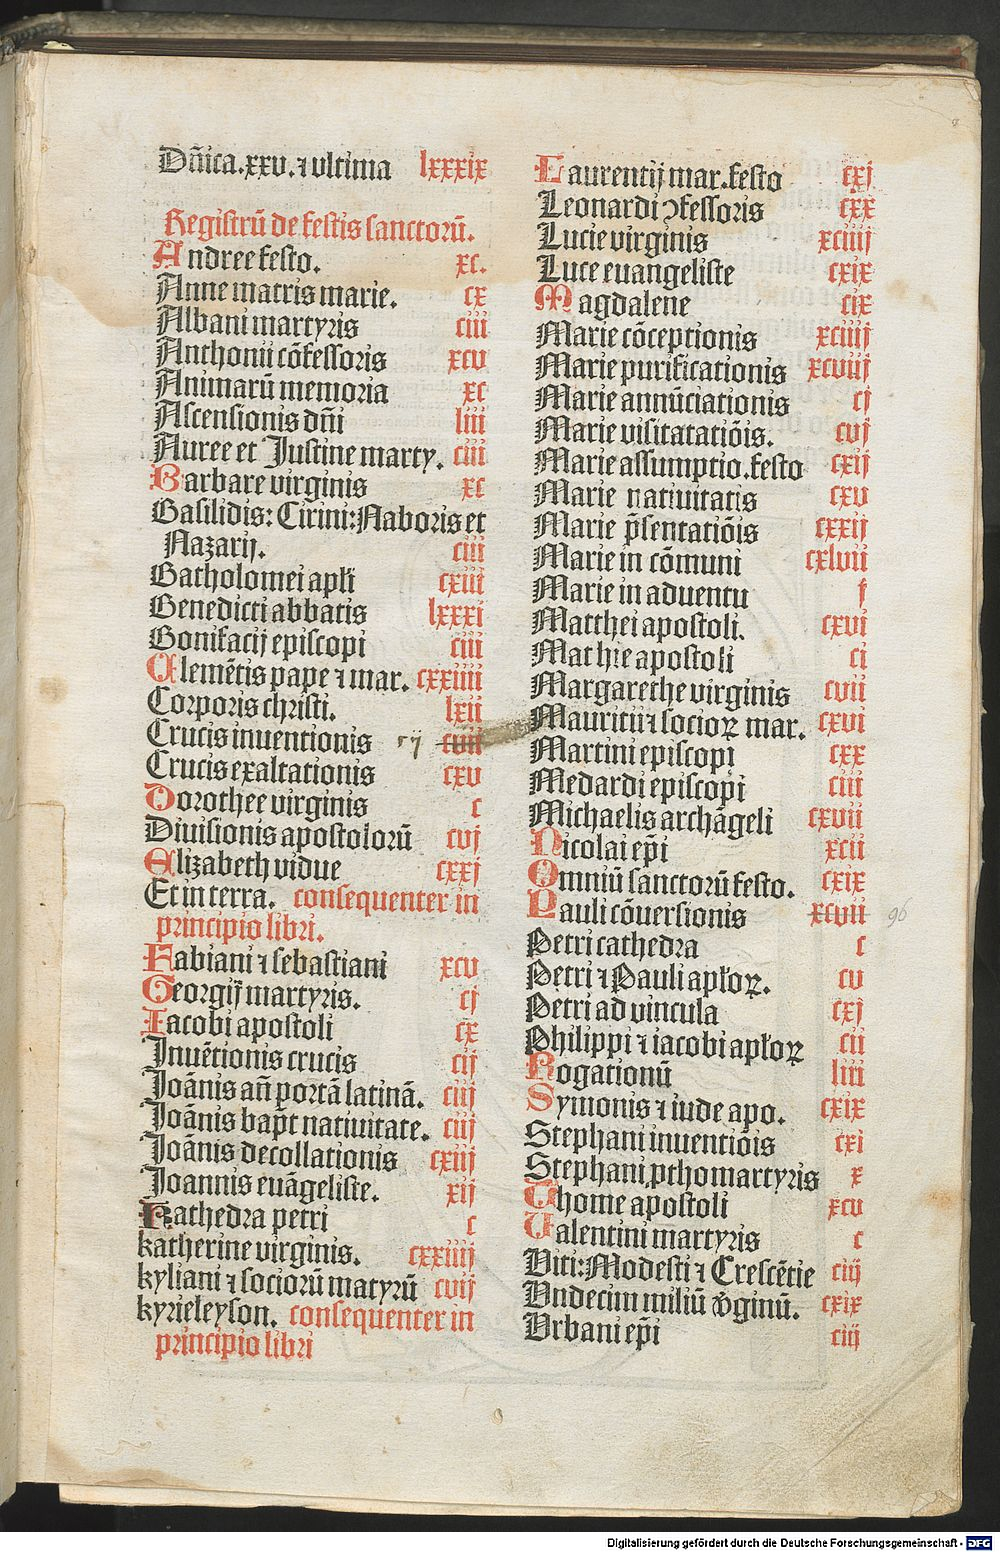 Dñica.xxv.⁊ ultima lxxxix
Registrū de festis sanctorū.
Andree festo. xc.
Anne matris marie. cx
Albani martyris ciii
Anthonii cōfessoris xcv
Animarū memoria xc
Ascensionis dñi liii
Auree et Justine marty. ciii
Barbare virginis xc
Basilidis: Cirini: Naboris et
Nazarij. ciii
Batholomei apłi cxiii
Benedicti abbatis lxxxi
Bonifacij episcopi ciii
Clemētis pape ⁊ mar. cxxiiii
Corporis christi. lxii
Crucis inuentionis cvii
Crucis exaltationis cxv
Dorothee virginis c
Diuisionis apostolorū cvj
Elizabeth vidue cxxj
Et in terra. consequenter in
principio libri.
Fabiani ⁊ sebastiani xcv
Georgij martyris. cj
Iacobi apostoli cx
Inuētionis crucis cij
Joānis añ portā latinā. ciij
Joānis bapt̄ natiuitate. ciij
Joānis decollationis cxiij
Joannis euāgeliste. xij
Kathedra petri c
katherine virginis. cxxiiij
kyliani ⁊ sociorū matyrū cvij
kyrieleyson. consequenter in
principio libri
Laurentij mar.festo cxj
Leonardi ɔfessoris cxx
Lucie virginis xciiij
Luce euangeliste cxix
Magdalene cix
Marie cōceptionis xciiij
Marie purificationis xcviij
Marie annūciationis cj
Marie visitatatiōis. cvj
Marie assumptio.festo cxij
Marie natiuitatis cxv
Marie p̄sentatiōis cxxij
Marie in cōmuni cxlvii
Marie in aduentu j
Matthei apostoli. cxvi
Mathie apostoli ci
Margarethe virginis cvii
Mauritii ⁊ socioꝝ mar. cxvi
Martini episcopi cxx
Medardi episcopi ciii
Michaelis archāgeli cxvii
Nicolai ep̄i xcii
Omniū sanctorū festo. cxix
Pauli cōuersionis xcvii 96
Petri cathedra c
Petri ⁊ Pauli apłoꝝ. cv
Petri ad vincula cxj
Philippi ⁊ iacobi apłoꝝ cii
Rogationū liii
Symonis ⁊ iude apo. cxix
Stephani inuentiōis cxi
Stephani ꝓthomartyris x
Thome apostoli xcv
Valentini martyris c
Viti: Modesti ⁊ Crescētie ciij
Vndecim miliū v̄ginū. cxix
Vrbani ep̄i ciij
Digitalisierung gefördert durch die Deutsche Forschungsgemeinschaft - DFG